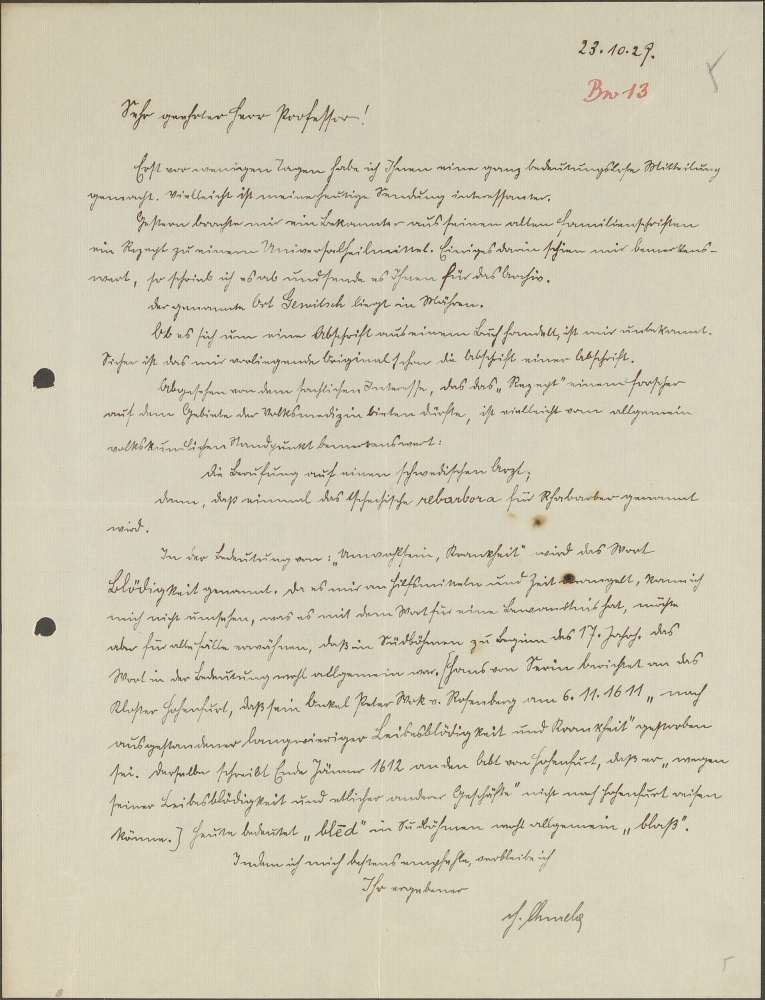 23. 10. 29.
Bw 13
Sehr geehrter Herr Professor!
Erst vor wenigen Tagen habe ich Ihnen eine ganz bedeutungslose Mitteilung
gemacht. Vielleicht ist meine heutige Sendung interessanter.
Gestern brachte mir ein Bekannter aus seinen alten Familienschriften
ein Rezept zu einem Universalheilmittel. Einiges darin schien mir bemerkens-
wert, so schrieb ich es ab und sende es Ihnen für das Archiv.
Der genannte Ort Gewitsch liegt in Mähren.
Ob es sich um eine Abschrift aus einem Buch handelt, ist mir unbekannt.
Sicher ist das mir vorliegende Original schon die Abschrift einer Abschrift.
Abgesehen von dem sachlichen Interesse, das das „Rezept" einem Forscher
auf dem Gebiete der Volksmedizin bieten dürfte, ist vielleicht vom allgemein
volkskundlichen Standpunkt bemerkenswert:
Die Berufung auf einen schwedischen Arzt;
dann, daß einmal das tschechische rebarbora für Rhabarber genannt
wird.
In der Bedeutung von: „Unwohlsein, Krankheit" wird das Wort
Blödigkeit genannt. Da es mir an Hilfsmitteln und Zeit mangelt, kann ich
mich nicht umsehen, was es mit dem Wort für eine Bewandtnis hat, möchte
aber für alle Fälle erwähnen, daß in Südböhmen zu Beginn des 17. Jahrh. das
Wort in der Bedeutung wohl allgemein war. [Hans von Serin berichtet an das
Kloster Hohenfurt, daß sein Onkel Peter Wok v. Rosenberg am 6. 11. 1611 „nach
ausgestandener langwieriger Leibesblödigkeit und Krankheit" gestorben
sei. Derselbe schreibt Ende Jänner 1612 an den Abt von Hohenfurt, daß er „wegen
seiner Leibesblödigkeit und etlicher anderer Geschäfte" nicht nach Hohenfurt reisen
könne.] Heute bedeutet „blēd" in Südböhmen wohl allgemein „blaß".
Indem ich mich bestens empfehle, verbleibe ich
Ihr ergebener